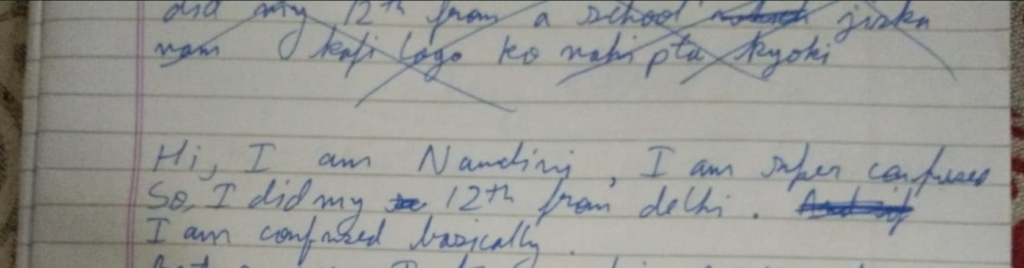 did my 12th from a school jiska
nam kafi logo ko nahi pta kyoki
Hi, I am Nandini, I am super confused
So, I did my 12th from delhi.
I am confused basically.